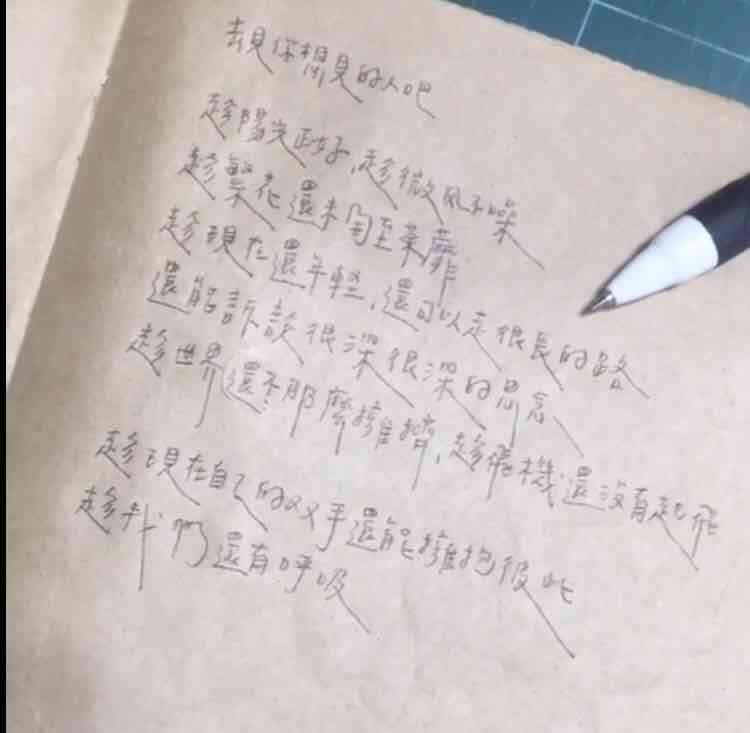 去見你想見的人吧
趁陽光正好，趁微風不噪
趁繁花還未開至荼蘼
趁現在還年輕，還可以走很長的路
還能訴說很深很深的思念
趁世界還不那麼擁擠，趁飛機還沒有起飛
趁現在自己的双手還能擁抱彼此
趁我們還有呼吸